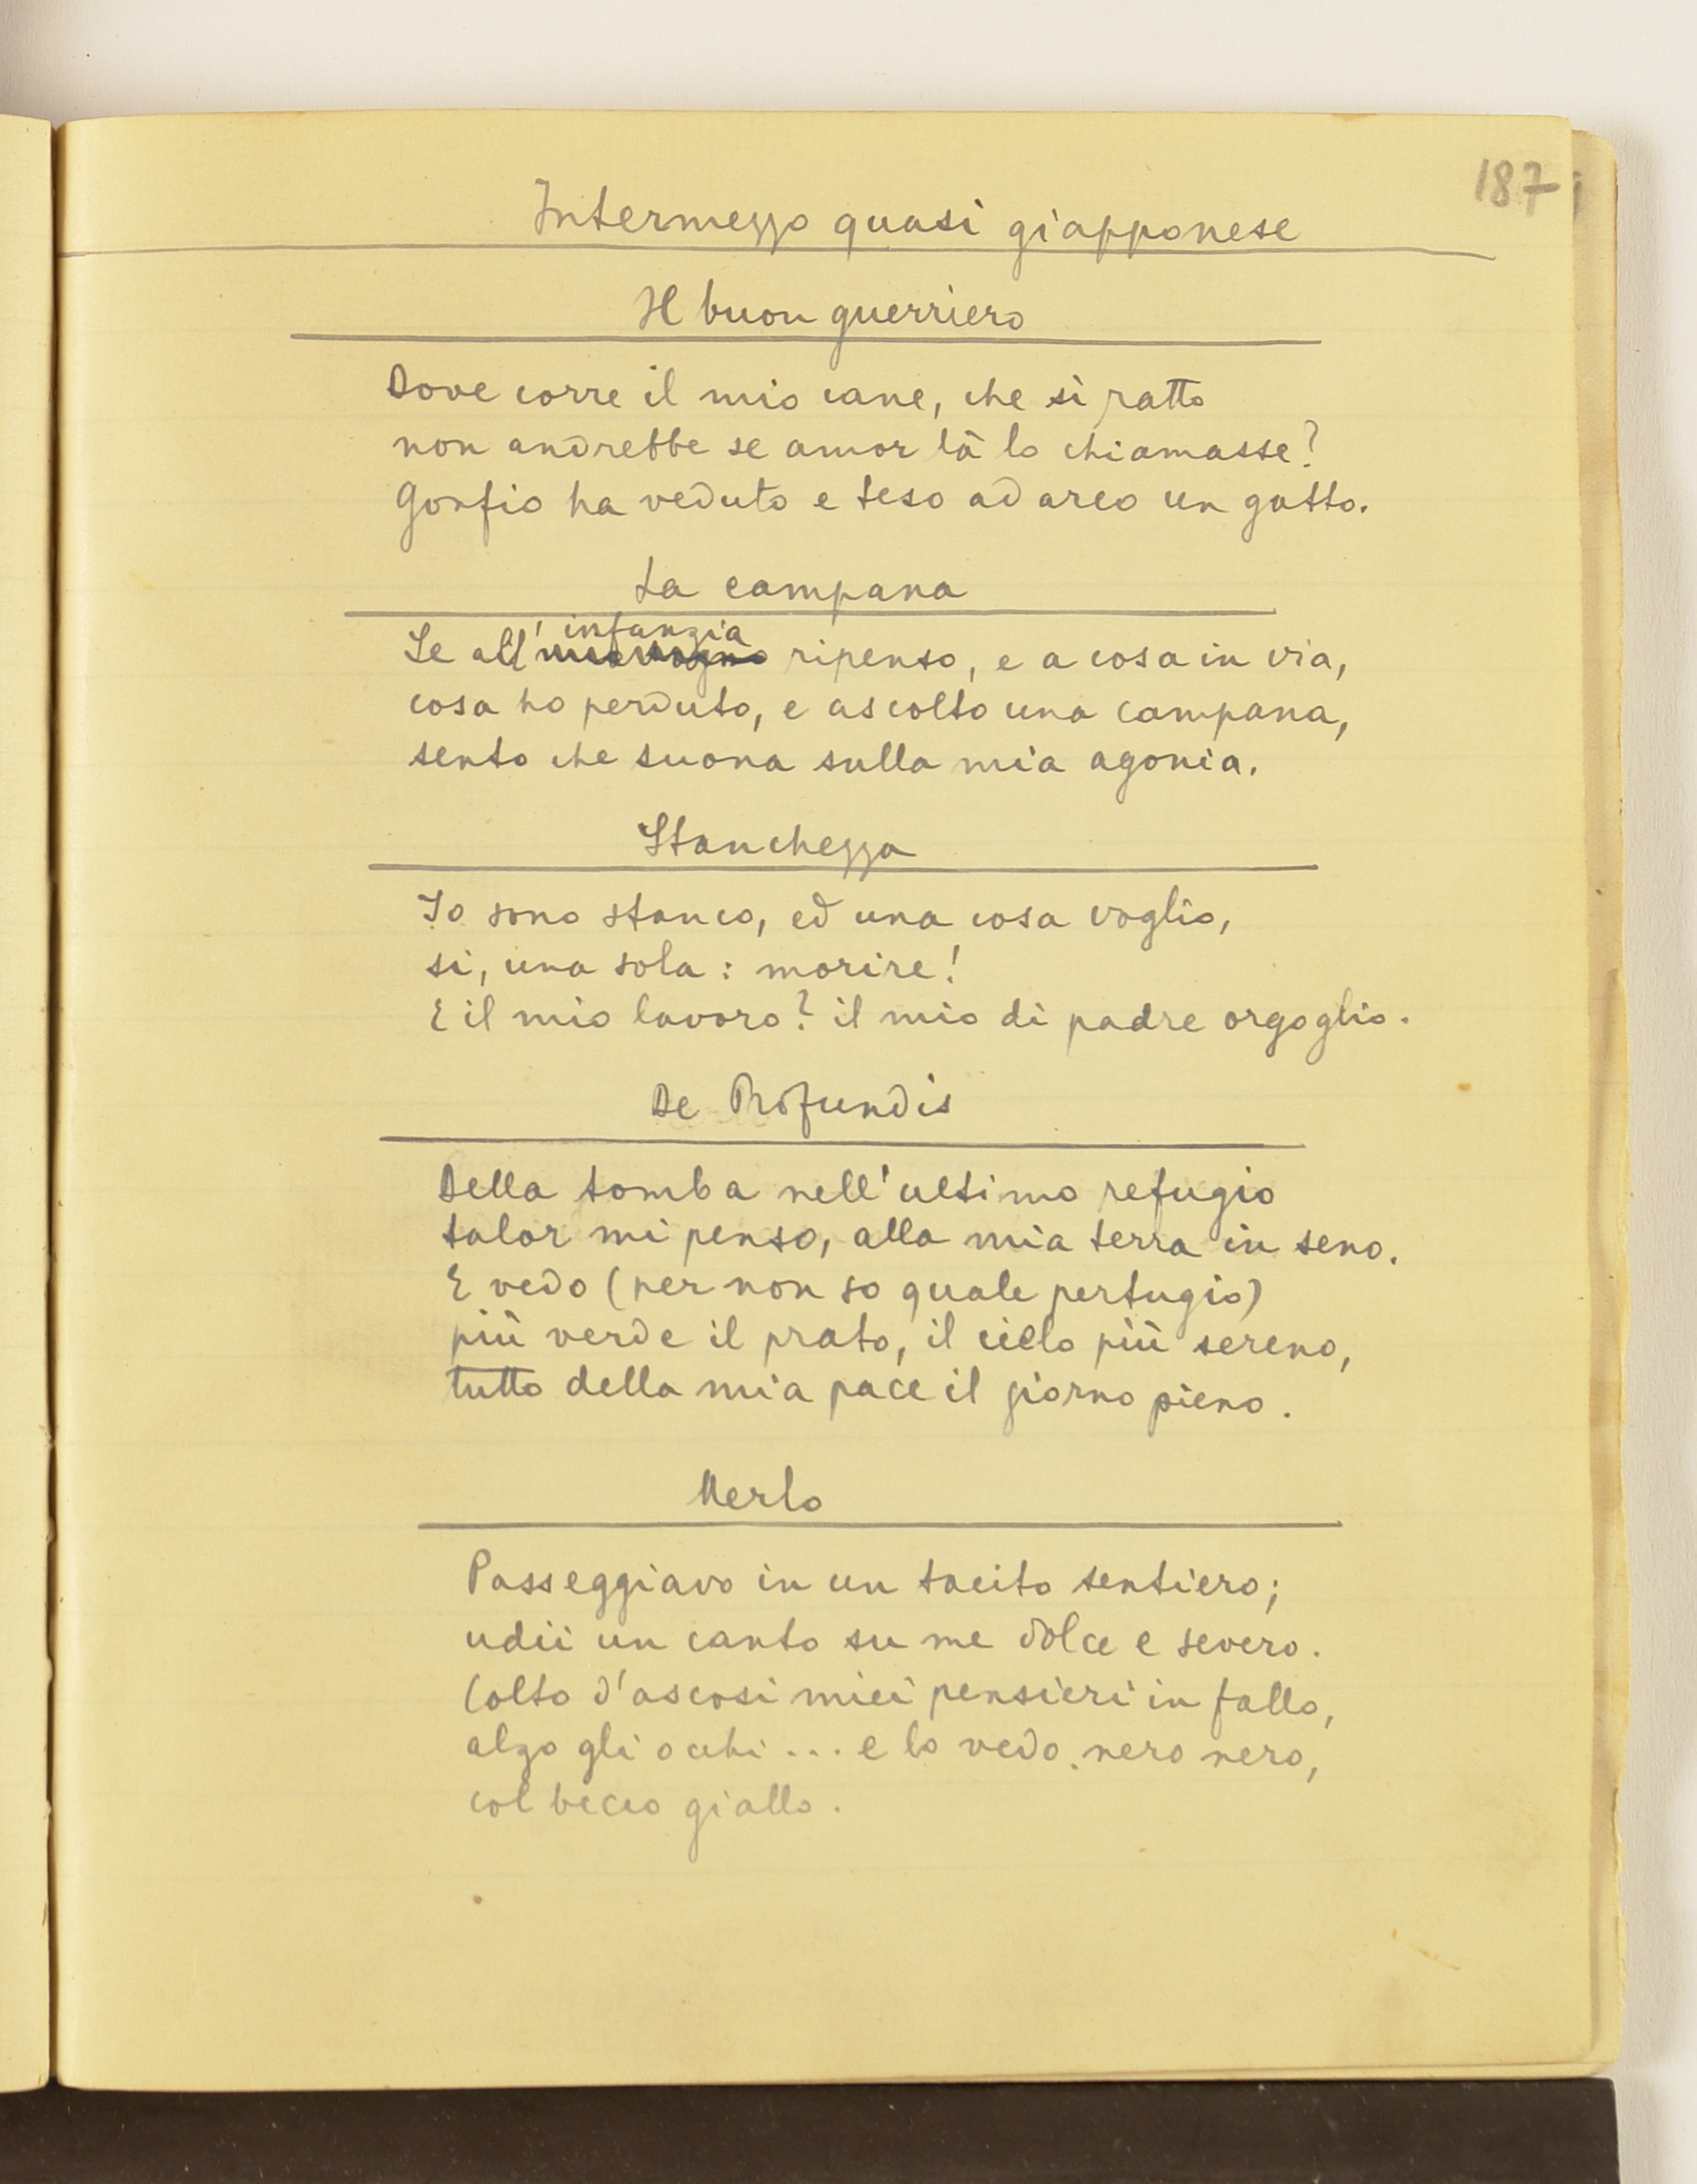 187
Intermezzo quasi giapponese
Il buon guerriero
Dove corre il mio cane, che sì ratto
non andrebbe se amor là lo chiamasse?
Gonfio ha veduto e teso ad arco un gatto.
La campana
Se all'infanzia ripenso, e a cosa in via,
cosa ho perduto, e ascolto una campana,
sento che suona sulla mia agonia.
Stanchezza
Io sono stanco, ed una cosa voglio,
si, una sola: morire!
E il mio lavoro? il mio di padre orgoglio.
De Profundis
Della tomba nell'ultimo refugio
talor mi penso, alla mia terra in seno.
E vedo (per non so quale pertugio)
più verde il prato, il cielo più sereno,
tutto della mia pace il giorno pieno.
Merlo
Passeggiavo in un tacito sentiero;
udii un canto su me dolce e severo.
Colto d'ascosi miei pensieri in fallo,
alzo gli occhi... e lo vedo nero nero,
col becco giallo.